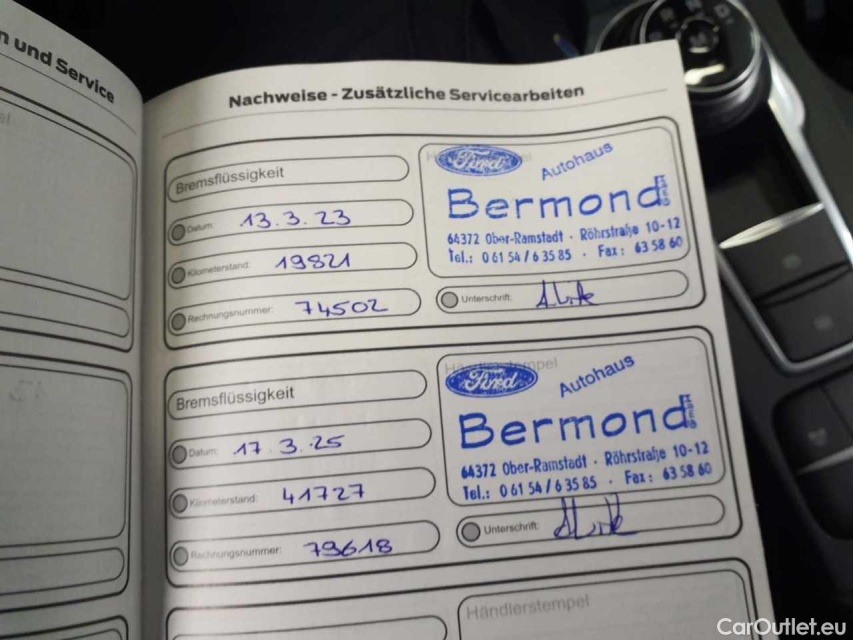 n und Service
Nachweise - Zusätzliche Servicearbeiten
Bremsflüssigkeit
Datum: 13.3.23
Kilometerstand: 19821
Rechnungsnummer: 74502
Ford Autohaus
Bermond
64372 Ober-Ramstadt · Röhrstraße 10-12
Tel.: 0 61 54 / 6 35 85 · Fax: 63 58 60
Unterschrift:
Bremsflüssigkeit
Datum: 17.3.25
Kilometerstand: 41727
Rechnungsnummer: 79618
Händlerstempel
Ford Autohaus
Bermond
64372 Ober-Ramstadt · Röhrstraße 10-12
Tel.: 0 61 54 / 6 35 85 · Fax: 63 58 60
Unterschrift:
Händlerstempel
CarOutlet.eu